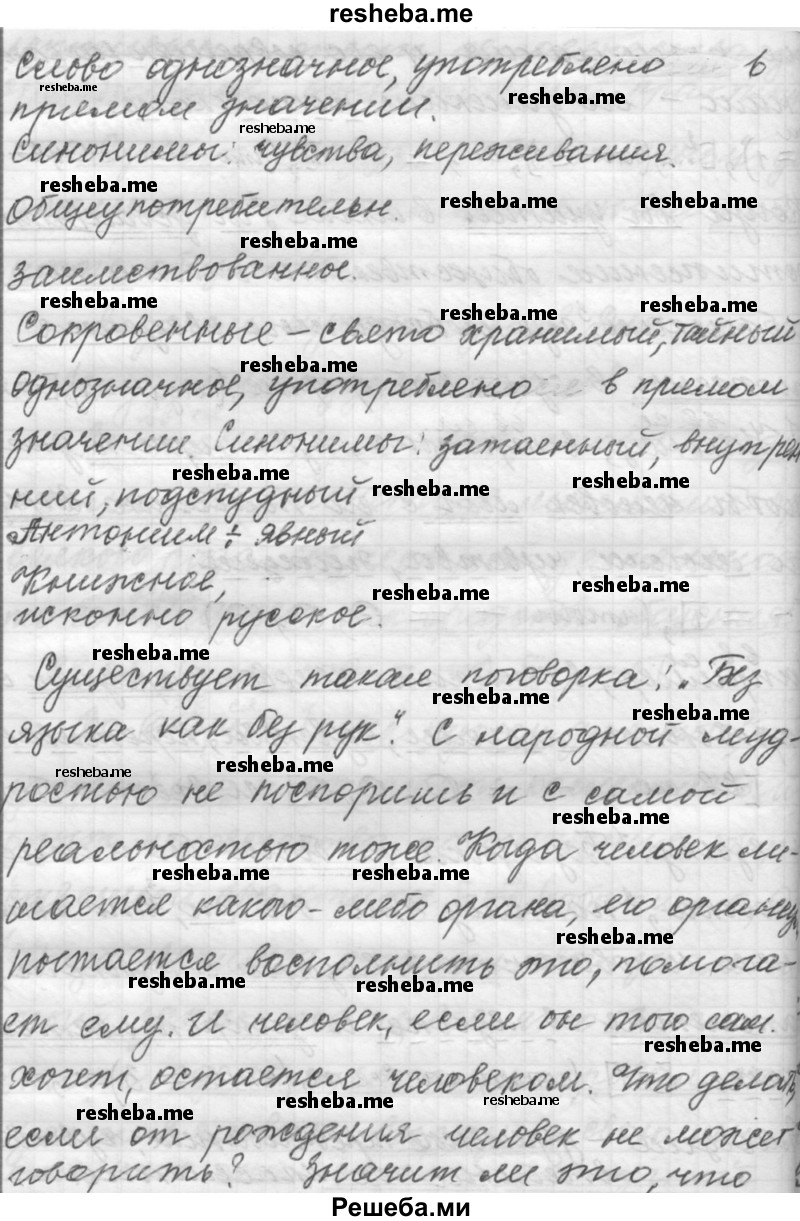 resheba.me
Слово однозначное, употреблено в
resheba.me
прямом значении. resheba.me
resheba.me
Синонимы: чувства, переживания.
resheba.me
Общеупотребительн. resheba.me resheba.me
resheba.me
заимствованное.
resheba.me resheba.me resheba.me
Сокровенные – свято хранимый, тайный
resheba.me
однозначное, употреблено в прямом
значении. Синонимы: затаенный, внутрен
resheba.me resheba.me resheba.me
ний, подспудный
Антоним ÷ явный
Книжное, resheba.me resheba.me
исконно русское.
resheba.me
Существует такая поговорка: „Без
resheba.me resheba.me
языка как без рук". С народной муд-
resheba.me resheba.me
ростью не поспоришь и с самой
resheba.me
реальностью тоже. Когда человек ли-
resheba.me resheba.me
шается какого-либо органа, его организм
resheba.me
пытается восполнить это, помога-
resheba.me resheba.me
ет ему. И человек, если он того сам
resheba.me
хочет, остается человеком. Что делать,
resheba.me resheba.me resheba.me
если от рождения человек не может
говорить? Значит ли это, что
Решеба.ми